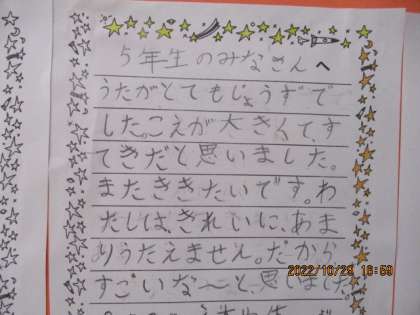 5年生のみなさんへ
うたがとてもじょうずで
した。こえが大きくて、す
てきだと思いました。
またききたいです。わ
たしは、きれいに、あま
りうたえません。だから
すごいな〜と、思いました。
2022/10/29 16:59